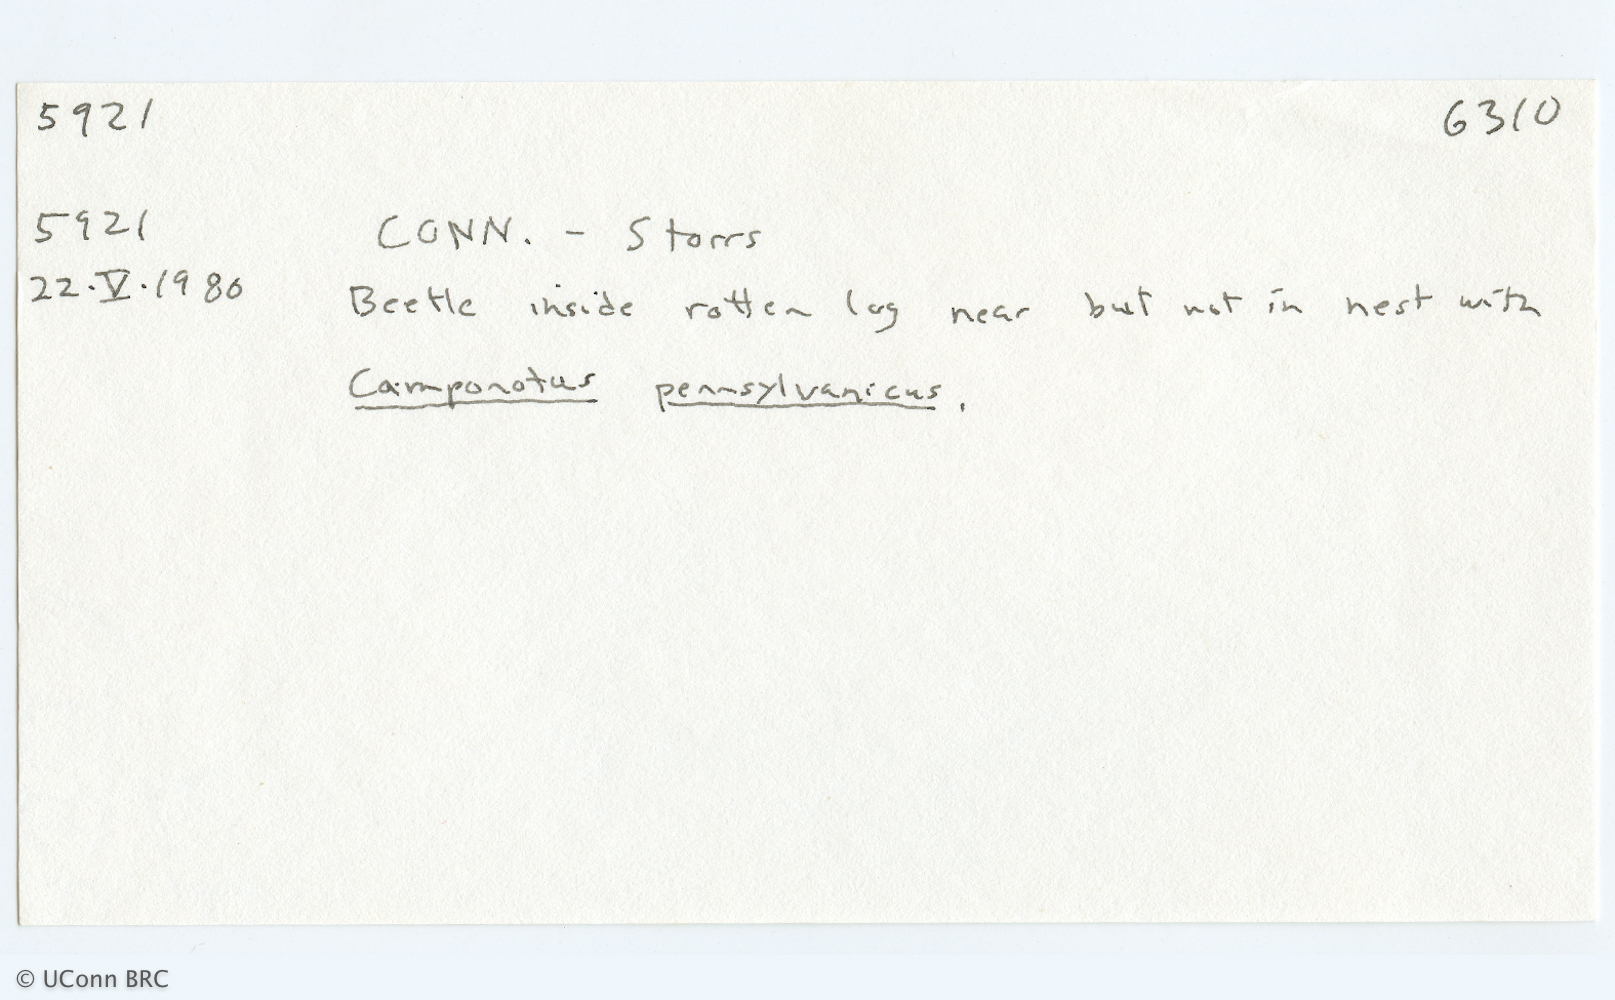 5921 6310
5921 CONN. - Storrs
22.V.1980 Beetle inside rotten log near but not in nest with
Camponotus pennsylvanicus.
© UConn BRC